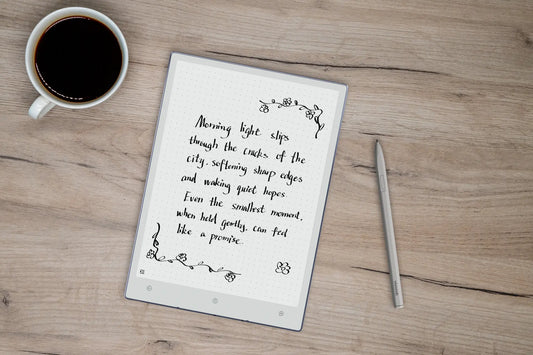 Morning light slips
through the cracks of the
city, softening sharp edges
and waking quiet hopes.
Even the smallest moment,
when held gently, can feel
like a promise.